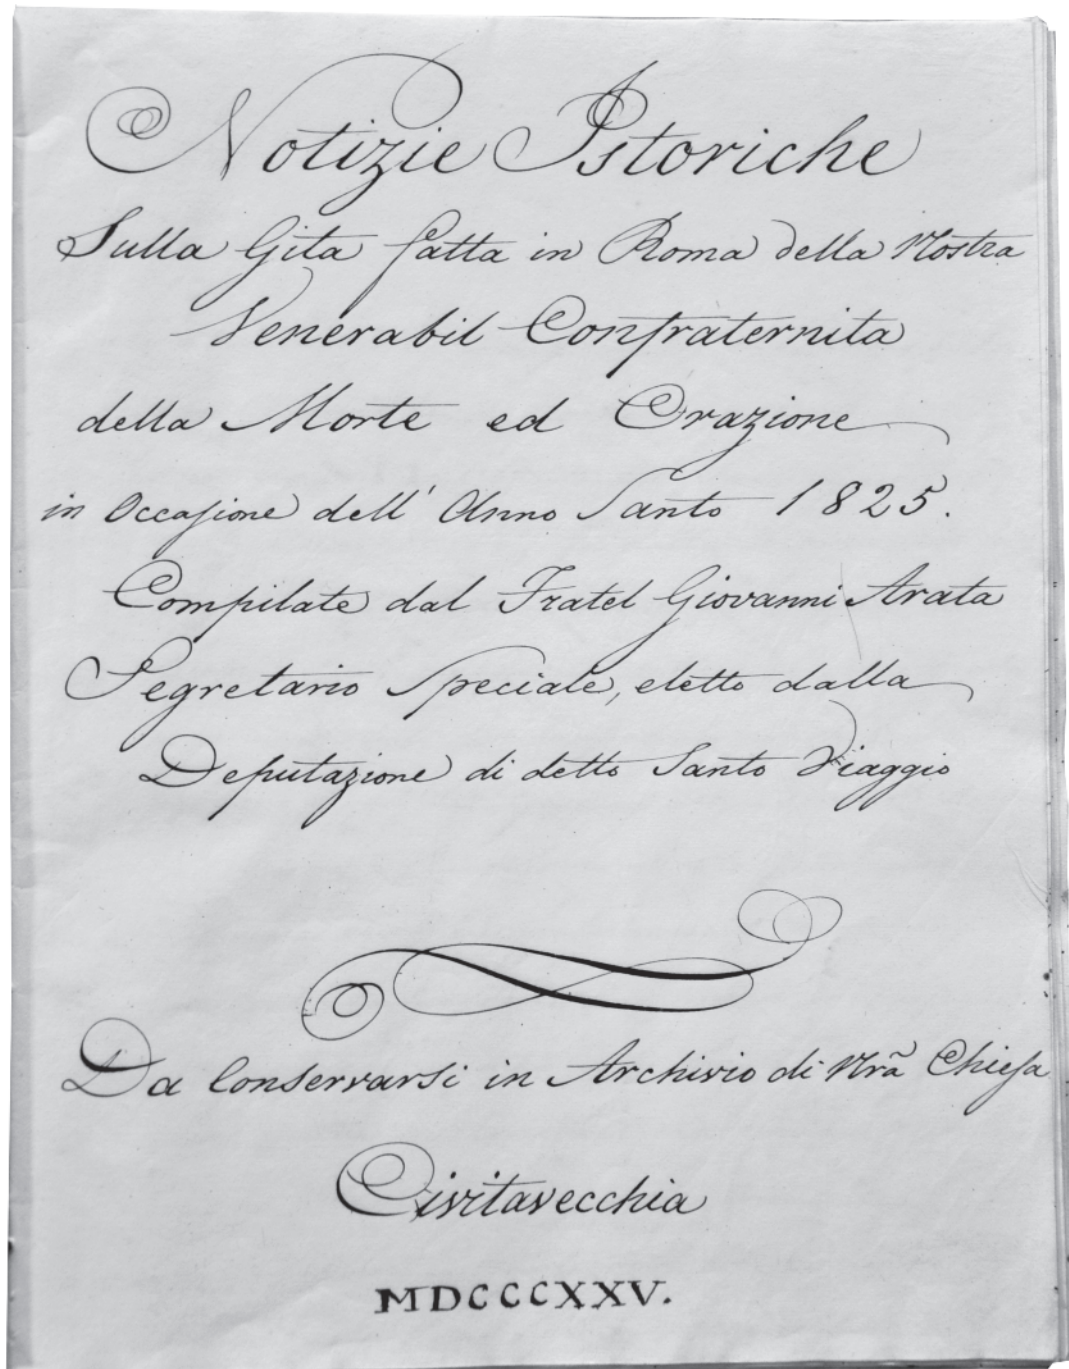 Notizie Istoriche
Sulla Gita fatta in Roma della Nostra
Venerabil Confraternita
della Morte ed Orazione
in Occasione dell' Anno Santo 1825.
Compilate dal Fratel Giovanni Arata
Segretario Speciale, eletto dalla
Deputazione di detto Santo Viaggio
Da Conservarsi in Archivio di Nrã Chiesa
Civitavecchia
MDCCCXXV.